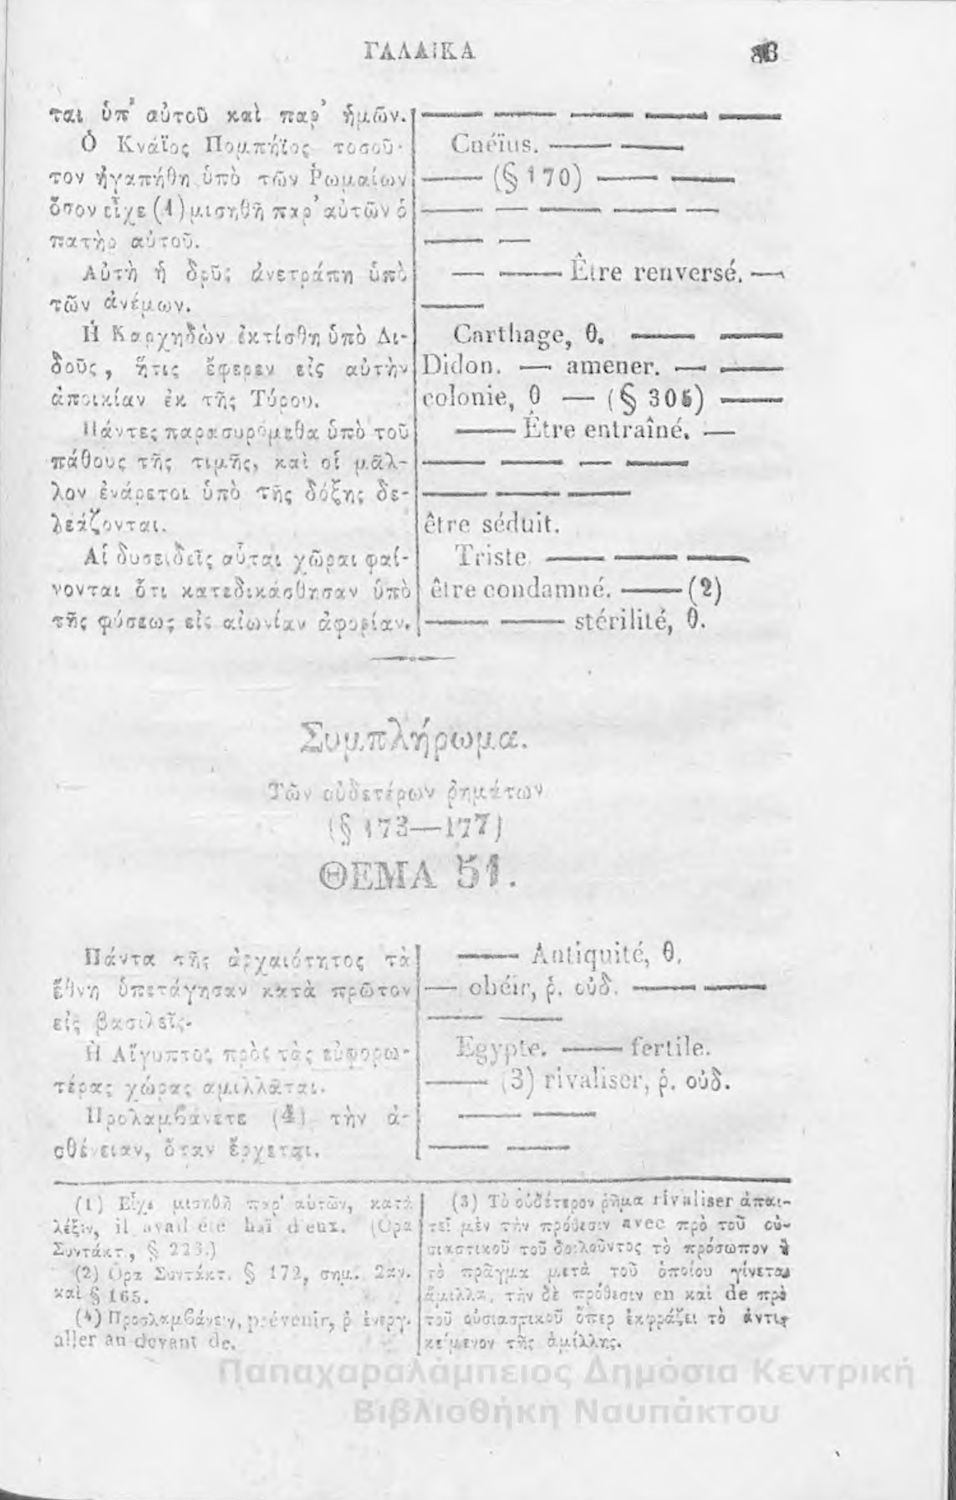 ΓΑΛΛΙΚΑ
ται ὑπ' αὐτοῦ καὶ παρ' ἡμῶν.
Ὁ Κνάϊος Πομπήϊος τοσοῦ-
τον ἠγαπήθη ὑπὸ τῶν Ῥωμαίων
ὅσον εἶχε (1) μισηθῆ παρ' αὐτῶν ὁ
πατὴρ αὐτοῦ.
Αὐτὴ ἡ δρῦς ἀνετράπη ὑπὸ
τῶν ἀνέμων.
Ἡ Καρχηδὼν ἐκτίσθη ὑπὸ Δι-
δοῦς, ἥτις ἔφερεν εἰς αὐτὴν
ἀποικίαν ἐκ τῆς Τύρου.
Πάντες παρασυρόμεθα ὑπὸ τοῦ
πάθους τῆς τιμῆς, καὶ οἱ μᾶλ-
λον ἐνάρετοι ὑπὸ τῆς δόξης δε-
λεάζονται.
Αἱ δυσειδεῖς αὗται χῶραι φαί-
νονται ὅτι κατεδικάσθησαν ὑπὸ
τῆς φύσεως εἰς αἰωνίαν ἀφορίαν.
Cnéïus.
(§ 170)
Être renversé.
Carthage, θ.
Didon. — amener.
colonie, θ — (§ 305)
Être entraîné.
être séduit.
Triste.
être condamné. — (2)
stérilité, θ.
Συμπλήρωμα.
Τῶν οὐδετέρων ῥημάτων
(§ 173—177)
ΘΕΜΑ 51.
Πάντα τῆς ἀρχαιότητος τὰ
ἔθνη ὑπετάγησαν κατὰ πρῶτον
εἰς βασιλεῖς.
Ἡ Αἴγυπτος πρὸς τὰς εὐφορω-
τέρας χώρας αμιλλᾶται.
Προλαμβάνετε (4) τὴν ἀ-
σθένειαν, ὅταν ἔρχεται.
— Antiquité, θ.
— obéir, ῥ. οὐδ.
Egypte. — fertile.
(3) rivaliser, ῥ. οὐδ.
(1) Εἶχε μισηθῆ παρ' αὐτῶν, κατὰ
λέξιν, il avait été haï d'eux. (Ὅρα
Συντάκτ., § 223.)
(2) Ὅρα Συντάκτ. § 172, σημ. 2αν.
καὶ § 165.
(4) Προσλαμβάνειν, prévenir, ῥ ἐνεργ.
aller au devant de.
(3) Τὸ οὐδέτερον ῥῆμα rivaliser ἀπαι-
τεῖ μὲν τὴν πρόθεσιν avec πρὸ τοῦ οὐ-
σιαστικοῦ τοῦ δηλοῦντος τὸ πρόσωπον ἢ
τὸ πρᾶγμα μετὰ τοῦ ὁποίου γίνεται
ἅμιλλα, τὴν δὲ πρόθεσιν en καὶ de πρὸ
τοῦ οὐσιαστικοῦ ὅπερ ἐκφράζει τὸ ἀντι-
κείμενον τῆς ἁμίλλης.
Παπαχαραλάμπειος Δημόσια Κεντρική
Βιβλιοθήκη Ναυπάκτου